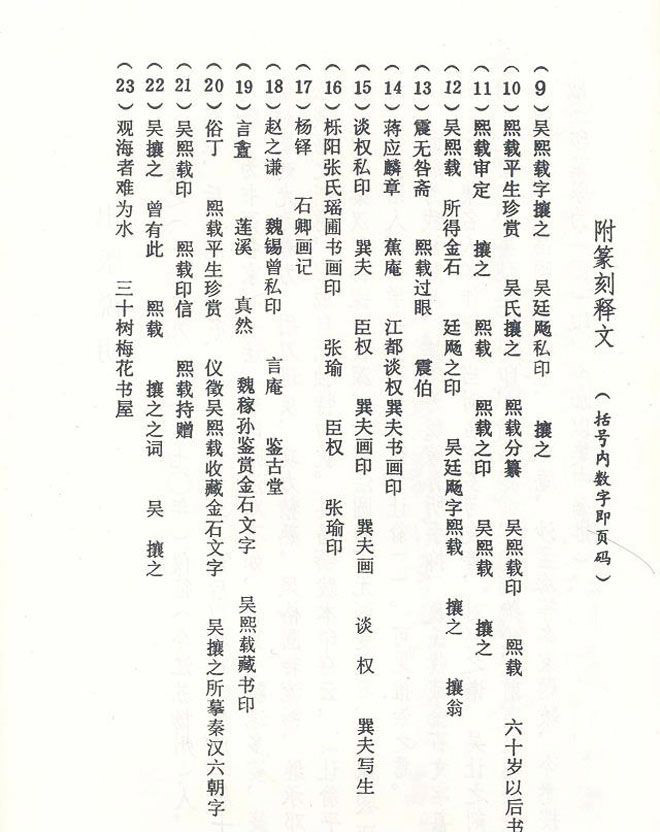 附篆刻释文 （括号内数字即页码）
（9）吴熙载字攘之 吴廷飏私印 攘之
（10）熙载平生珍赏 吴氏攘之 熙载分纂 吴熙载印 熙载 六十岁以后书
（11）熙载审定 攘之 熙载 熙载之印 吴熙载 攘之
（12）吴熙载 所得金石 廷飏之印 吴廷飏字熙载 攘之 攘翁
（13）震无咎斋 熙载过眼 震伯
（14）蒋应麟章 蕉庵 江都谈权巽夫书画印
（15）谈权私印 巽夫 臣权 巽夫画印 巽夫画 谈权 巽夫写生
（16）栎阳张氏瑶圃书画印 张瑜 臣权 张瑜印
（17）杨铎 石卿画记
（18）赵之谦 魏锡曾私印 言庵 鉴古堂
（19）言盦 莲溪 真然 魏稼孙鉴赏金石文字 吴熙载藏书印
（20）俗丁 熙载平生珍赏 仪徵吴熙载收藏金石文字 吴攘之所摹秦汉六朝字
（21）吴熙载印 熙载印信 熙载持赠
（22）吴攘之 曾有此 熙载 攘之之词 吴 攘之
（23）观海者难为水 三十树梅花书屋